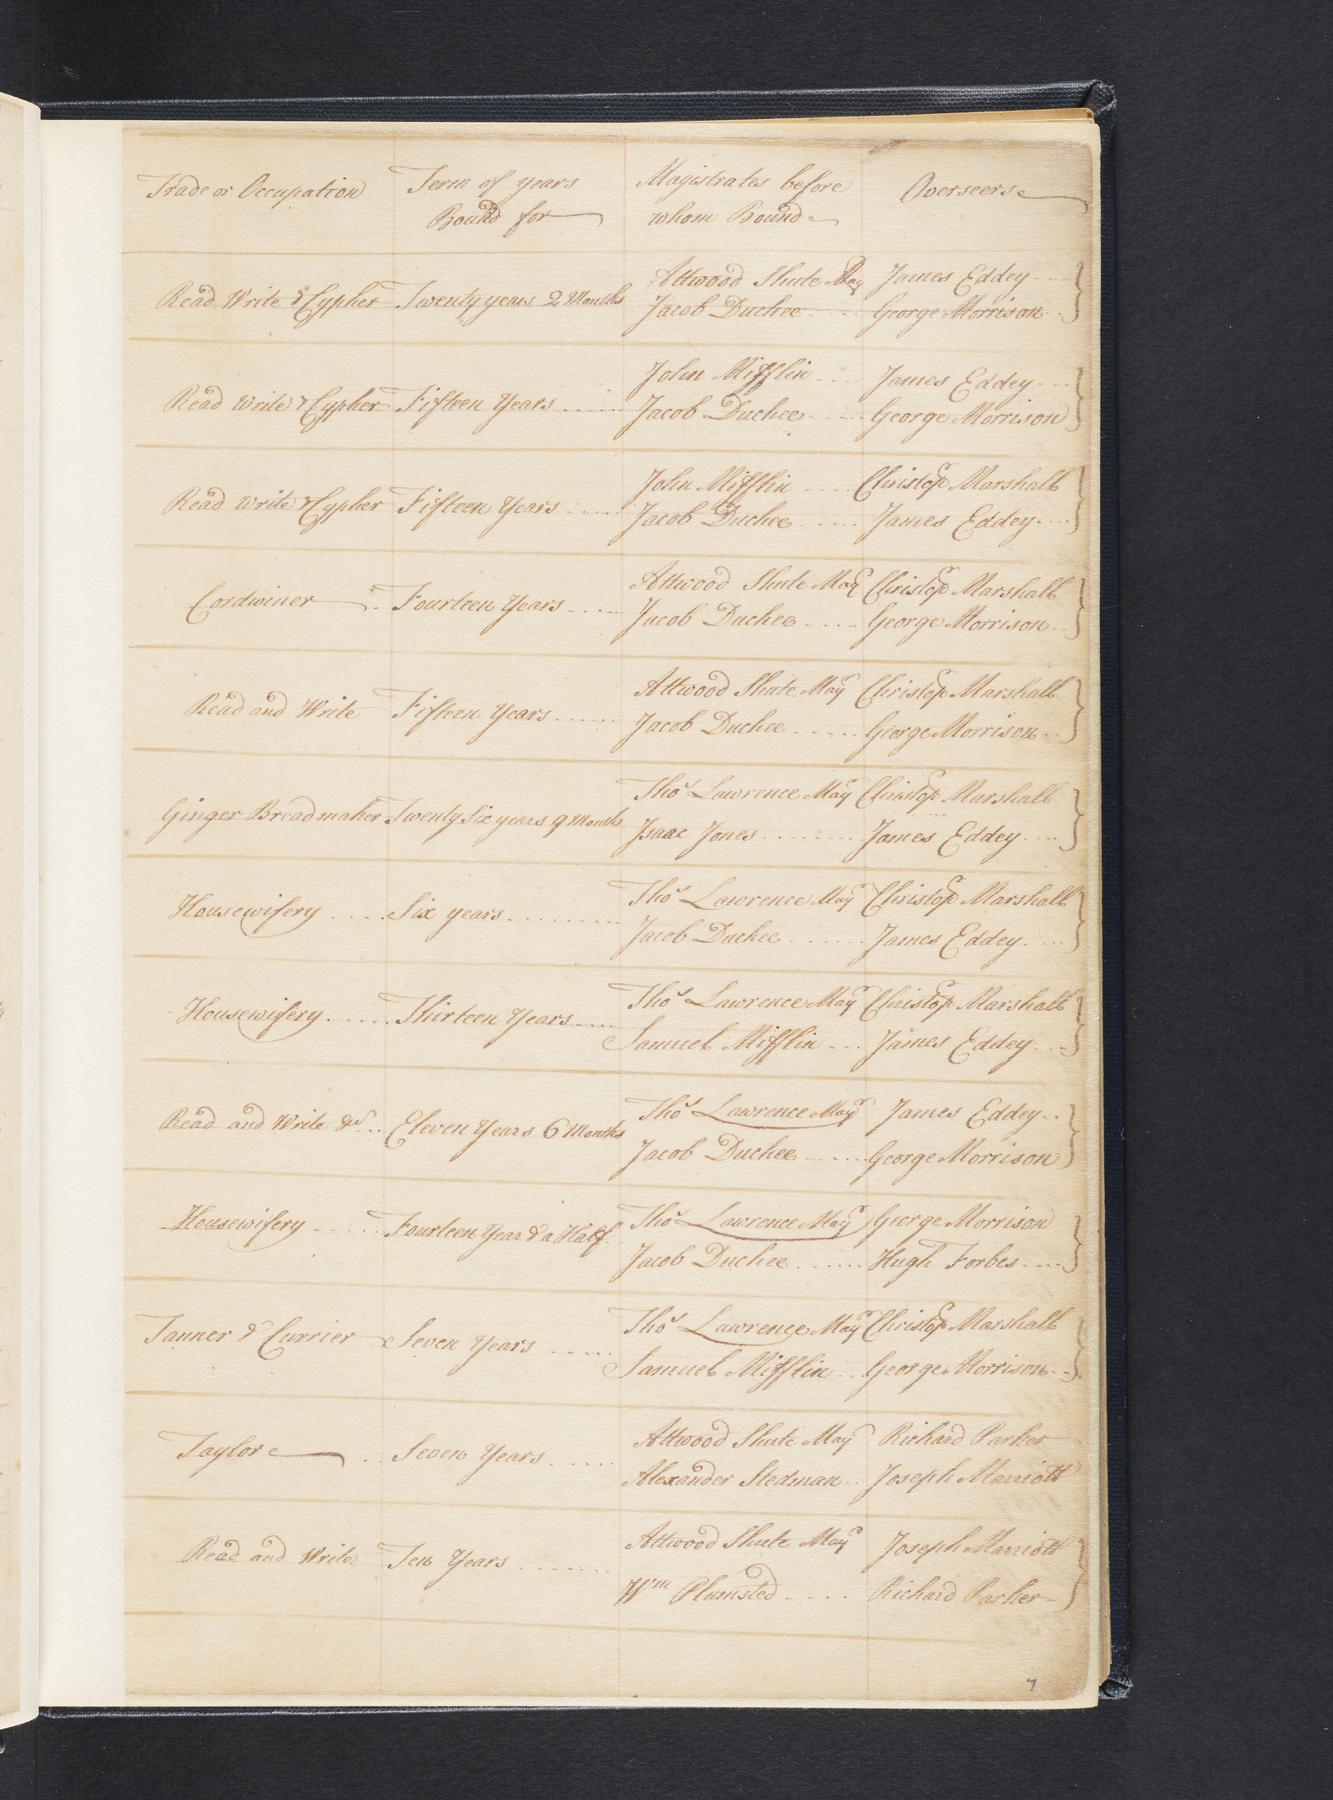 Trade or Occupation Term of years Bound for Magistrates before whom Bound Overseers
Read Write & Cypher Twenty years 2 Months Attwood Shute May James Eddey
Jacob Duchee George Morrison
Read Write & Cypher Fifteen Years John Mifflin James Eddey
Jacob Duchee George Morrison
Read Write & Cypher Fifteen Years John Mifflin Christopr Marshall
Jacob Duchee James Eddey
Cordwiner Fourteen Years Attwood Shute Mayr Christopr Marshall
Jacob Duchee George Morrison
Read and Write Fifteen Years Attwood Shute Mayr Christopr Marshall
Jacob Duchee George Morrison
Ginger Bread maker Twenty Six years 9 Months Thos Lawrence Mayr Christopr Marshall
Isaac Jones James Eddey
Housewifery Six years Thos Lawrence Mayr Christopr Marshall
Jacob Duchee James Eddey
Housewifery Thirteen Years Thos Lawrence Mayr Christopr Marshall
Samuel Mifflin James Eddey
Read and Write &c Eleven Years 6 Months Thos Lawrence Mayr James Eddey
Jacob Duchee George Morrison
Housewifery Fourteen Year & a Half Thos Lawrence Mayr George Morrison
Jacob Duchee Hugh Forbes
Tanner & Currier Seven Years Thos Lawrence Mayr Christopr Marshall
Samuel Mifflin George Morrison
Taylor Seven Years Attwood Shute Mayr Richard Parker
Alexander Stedman Joseph Marriott
Read and Write Ten Years Attwood Shute Mayr Joseph Marriott
Wm Plumsted Richard Parker
7